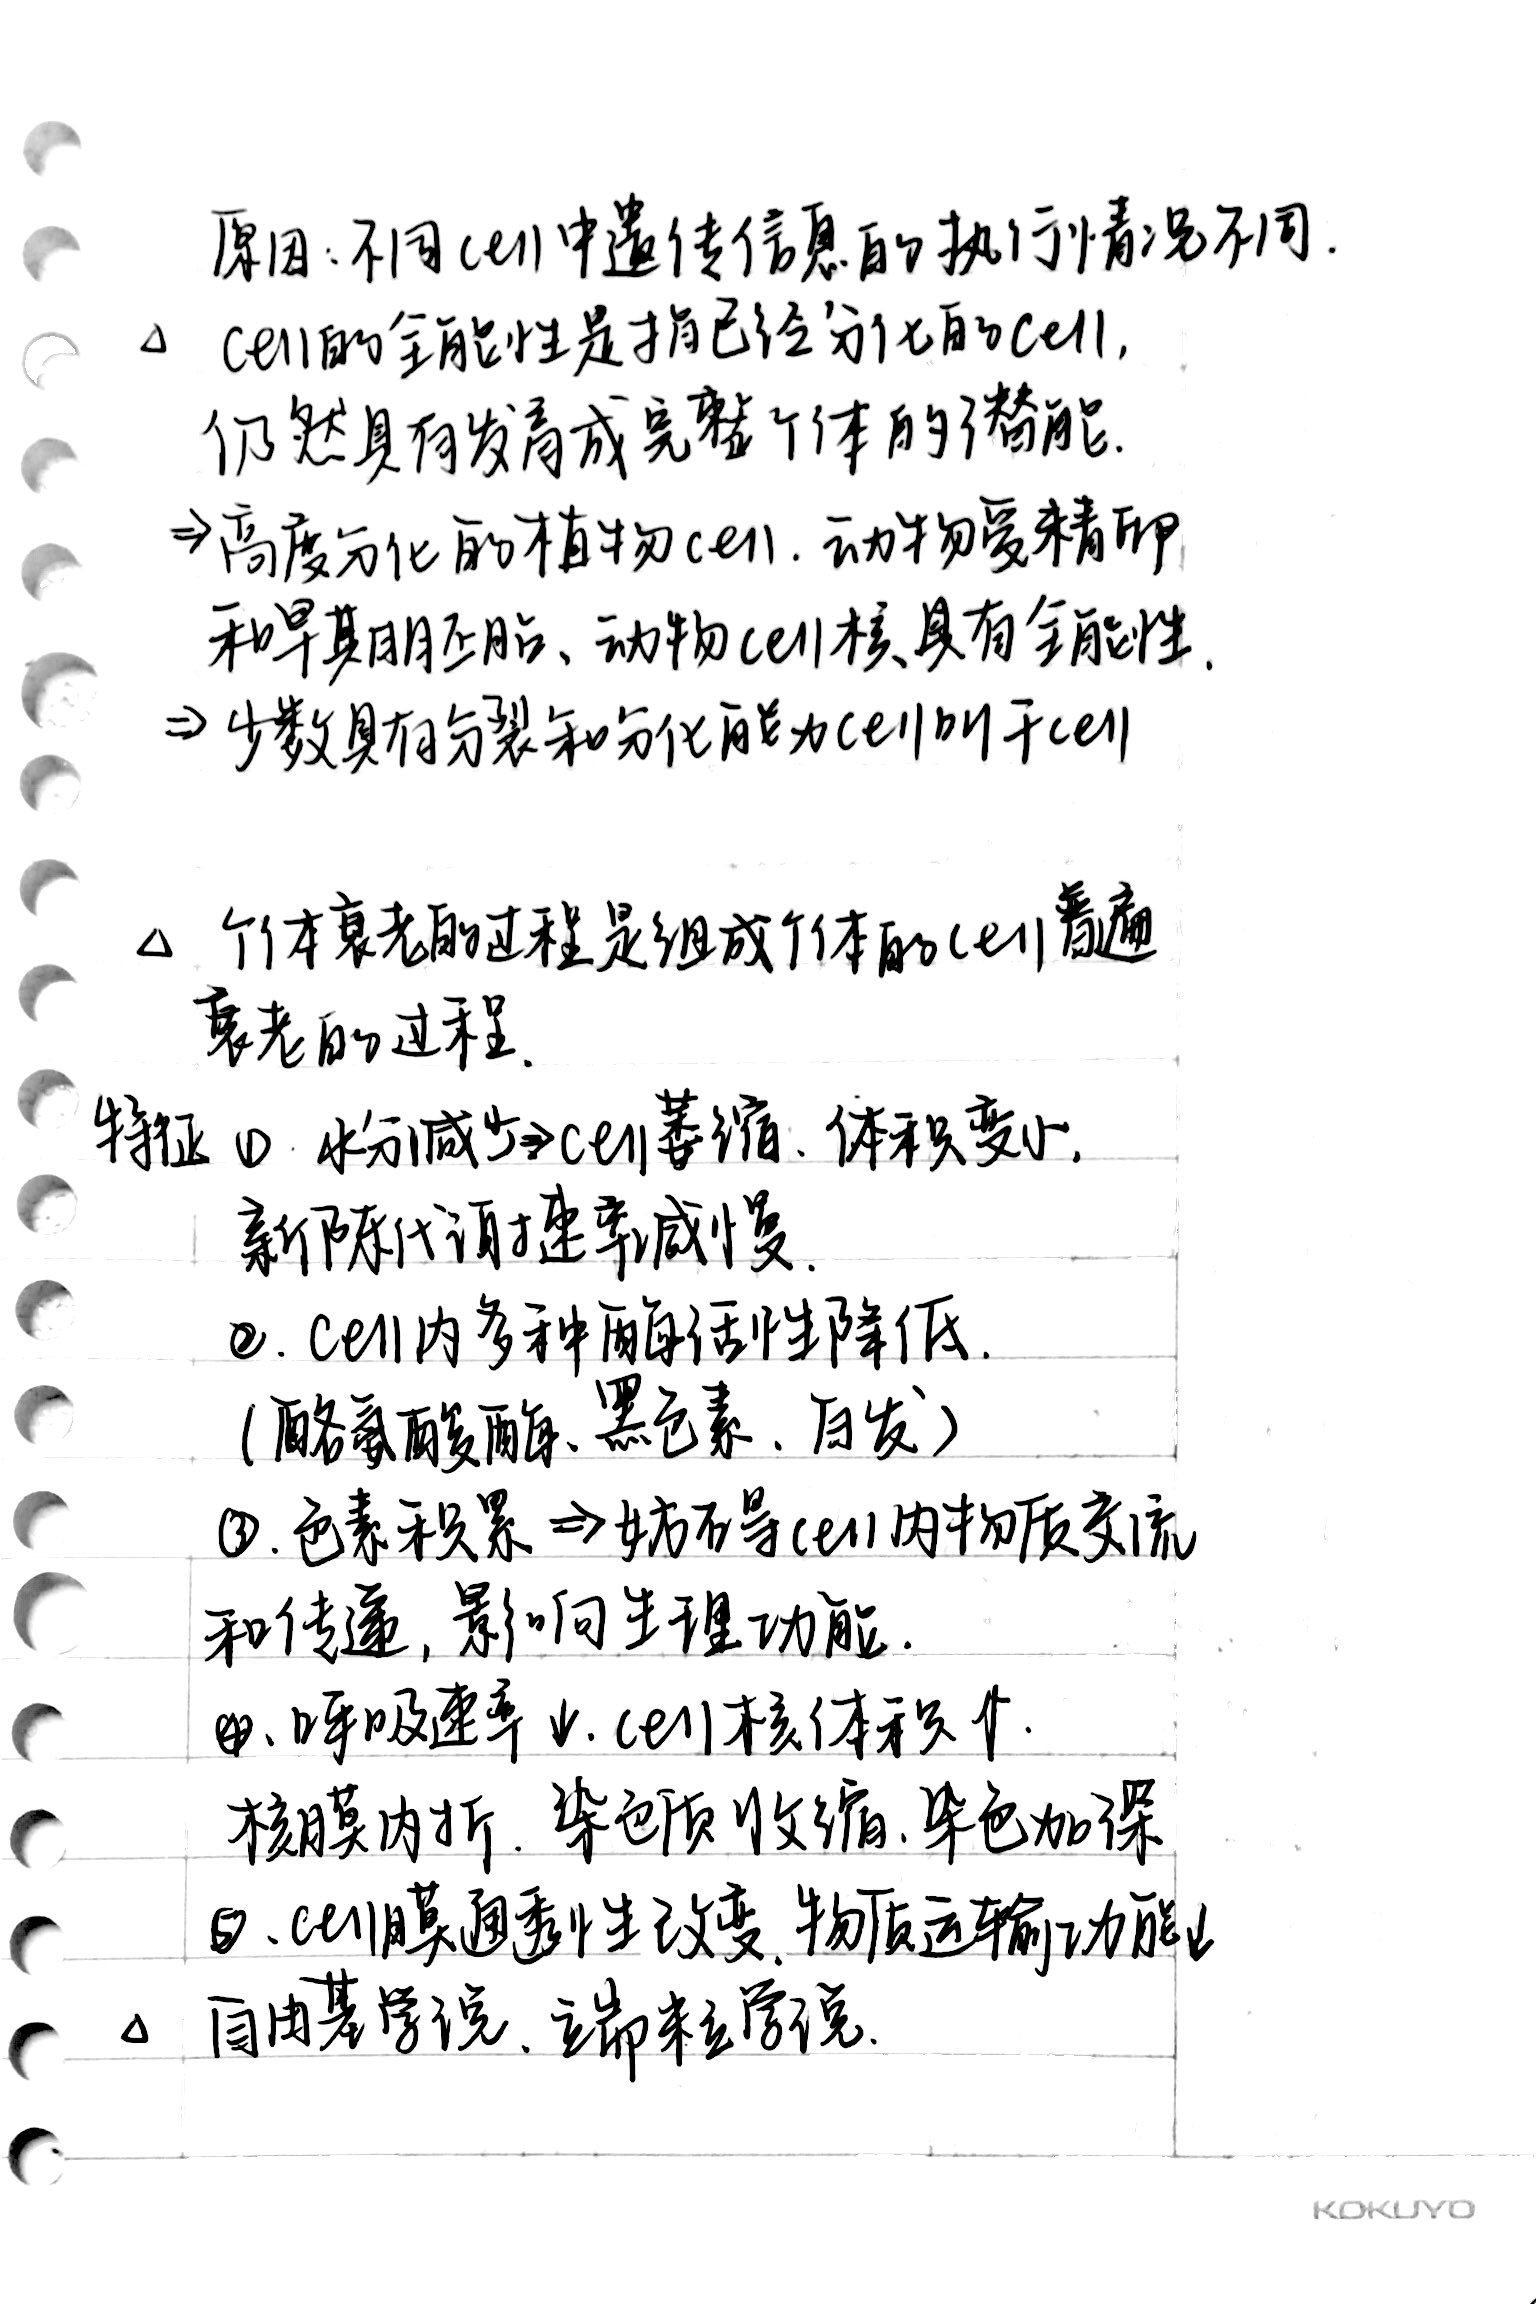 原因：不同cell中遗传信息的执行情况不同.
△ cell的全能性是指已经分化的cell,
仍然具有发育成完整个体的潜能.
⇒高度分化的植物cell. 动物受精卵
和早期胚胎、动物cell核、具有全能性.
⇒ 少数具有分裂和分化能力cell叫干cell
△ 个体衰老的过程是组成个体的cell普遍
衰老的过程.
特征 ①. 水分减少⇒cell萎缩. 体积变小.
新陈代谢速率减慢.
②. cell内多种酶活性降低.
(酪氨酸酶、黑色素、白发)
③. 色素积累 ⇒妨碍cell内物质交流
和传递, 影响生理功能.
④、呼吸速率↓. cell核体积↑.
核膜内折. 染色质收缩、染色加深
⑤、cell膜通透性改变. 物质运输功能↓
△ 自由基学说、端粒学说.
KOKUYO